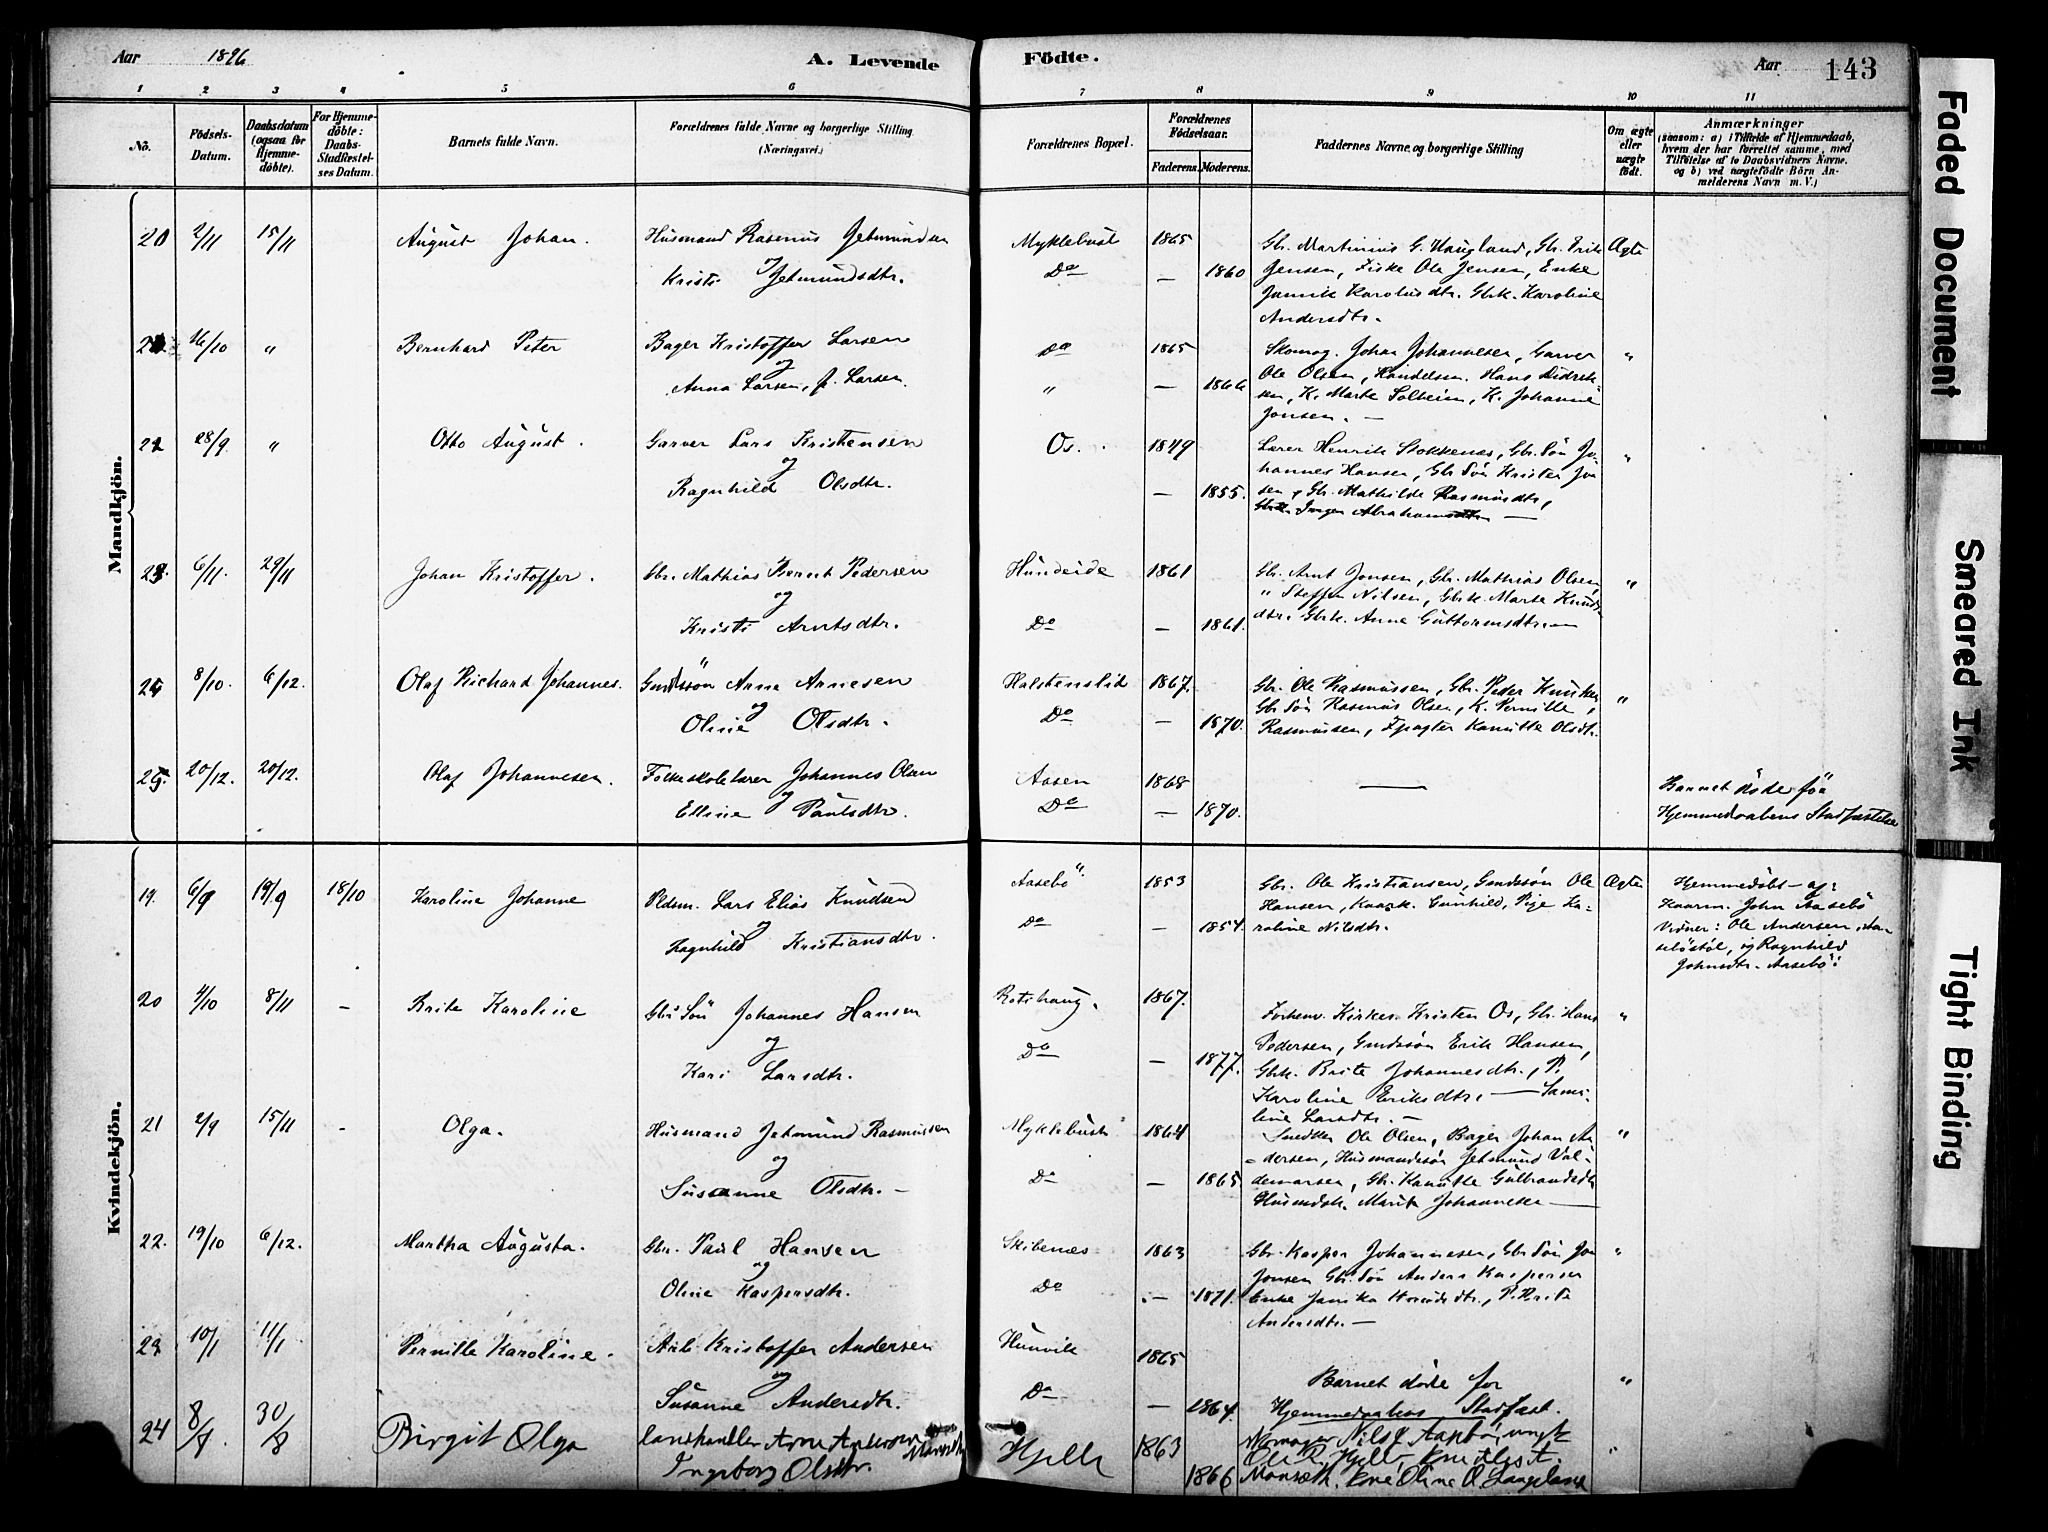 Aar 1896 A. Levende Fødte. Aar 143
1 2 3 4 5 6 7 8 9 10 11
No. Födsels-Datum. Daabsdatum (ogsaa for Hjemmedöbte). For Hjemmedöbte: Daabs-Stadfæstelses Datum. Barnets fulde Navn. Forældrenes fulde Navne og borgerlige Stilling (Næringsvei.) Forældrenes Bopæl. Forældrenes Födselsaar. Faderens. Moderens. Faddernes Navne og borgerlige Stilling Om ægte eller uægte födt. Anmærkninger (saasom: a) i Tilfælde af Hjemmedaab, hvem der har forrettet samme, med Tilföielse af to Daabsvidners Navne, og b) ved uægtefödte Börn Anmelderens Navn m. V.)
Mandkjön.
20 2/11 15/11 August Johan. Husmand Rasmus Jetmundsen Myklebust 1865 Gbr. Martinius G. Haugland, Gbr. Erik Ægte
og Kristi Jetmundsdtr. Do — 1860 Jensen, Fiske Ole Jensen, Enke
Jannik Karolusdtr. Gbrk. Karoline
Andersdtr.
21 16/10 " Bernhard Peter Bager Kristoffer Larsen Do 1865 Skomag. Johan Johannesen, Garver "
og Anna Larsen, f. Larsen. " — 1866 Ole Olsen, Handelsm. Hans Didrik-
sen, K. Marte Solheim, K. Johanne
Jonsen. —
22 28/9 " Otto August. Garver Lars Kristensen Os. 1849 Lærer Henrik Stokkenæs, Gbr. Sön Jo- "
og hannes Hansen, Gbr. Sön Krister Jon
Ragnhild Olsdtr. — 1855. sen, Gbr. Mathilde Rasmusdtr,
Inger Abrahamsdtr —
23. 6/11. 29/11 Johan Kristoffer. Gbr. Mathias Bernt Pedersen Hundeide 1861 Gbr. Arnt Jonsen, Gbr. Mathias Olsen, "
og " Steffen Nilsen, Gbrk. Marte Knuds-
Kristi Arntsdtr. Do — 1861. dtr. Gbrk. Anne Guttormsdtr. —
24 8/10. 6/12. Olaf Richard Johannes. Gmdssön Arne Arnesen Halstenslid 1867. Gbr. Ole Rasmussen, Gbr. Peder "
og Gbr. Sön Rasmus Olsen, K. Pernille,
Oline Olsdtr. Do — 1870. Rasmussen, Olsdtr.
25. 20/12. 20/12. Olaf Johannesen. Folkeskolelærer Johannes Olsen Aasen 1868 — Barnet döde för
og Elline Paulsdtr. Do — 1870. Hjemmedaabens Stadfæstelse
Kvindekjön.
19. 6/9 19/9 18/10 Karoline Johanne Pldsm. Lars Elias Knudsen Aasebö 1853 Gbr. Ole Kristiansen, Gmdssön Ole Ægte Hjemmedöbt af:
og Hansen, Kaark. Gunhild, Pige Ka- Kaarm. John Aasebö
Ragnhild Kristiansdtr. Do — 1854. roline Nilsdtr. Vidner: Ole Andersen Aa-
seböstöl, og Ragnhild
Johnsdtr. Aasebö:
20 4/10 8/11 — Brite Karoline Gbr. Sön Johannes Hansen Rotihaug. 1867. Forhenv. Kirkes. Kristen Os, Gbr. Hans "
og Pedersen, Gmdssön Erik Hansen,
Kari Larsdtr. Do — 1877. Gbrk. Brite Johannesdtr., P.
Karoline Eriksdtr. —
line Larsdtr. —
21 2/9 15/11 - Olga. Husmand Jetmund Rasmussen Myklebust 1864 Snedker Ole Olsen, Bager Johan An "
og dersen, Husmandssön Jetmund Val-
Susanne Olsdtr. — Do — 1865. demarsen, Gbr. Kanutte Gulbrandsdtr
Husmdsk. Marit Johannesen —
22. 19/10 6/12. Martha Augusta. Gbr. Paul Hansen Skibenæs 1863 Gbr. Kasper Johannesen, Gbr. Sön Jon "
og Jonsen Gbr. Sön Anders Kaspersen
Oline Kaspersdtr. Do — 1871. Enke Janika P. Brite
Andersdtr. —
23 10/1 11/1 Pernille Karoline. Arb. Kristoffer Andersen Hunvik 1865 Barnet döde for "
og Susanne Andersdtr. Do — 1864. Hjemmedaabens Stadfæst.
24 8/7. 30/8 Birgit Olga Landhandler Arne Andersen Monseth Hjelle 1863 Nils "
Ingeborg Olsdtr. 1866 Ole R. Hjelle,
Monseth. Kone Oline O. Langeland
Faded Document
Smeared Ink
Tight Binding